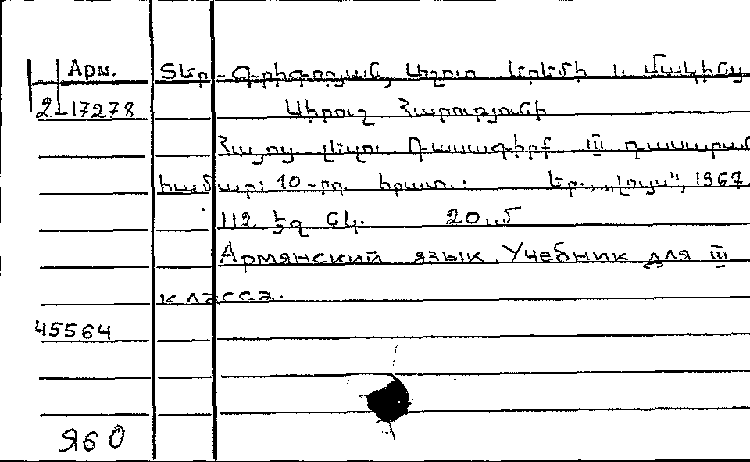 Арм. Տեր-Գրիգորյան, Աշոտ Երեմի և Մակինյ
2-17278 Սիրուշ Հարությունի
Հայոց լեզու Դասագիրք III դասարան
համար: 10-րդ հրատ.: Եր., „Լույս“, 1967.
112 էջ նկ. 20սմ
Армянский язык. Учебник для III
класса.
45564
Я60